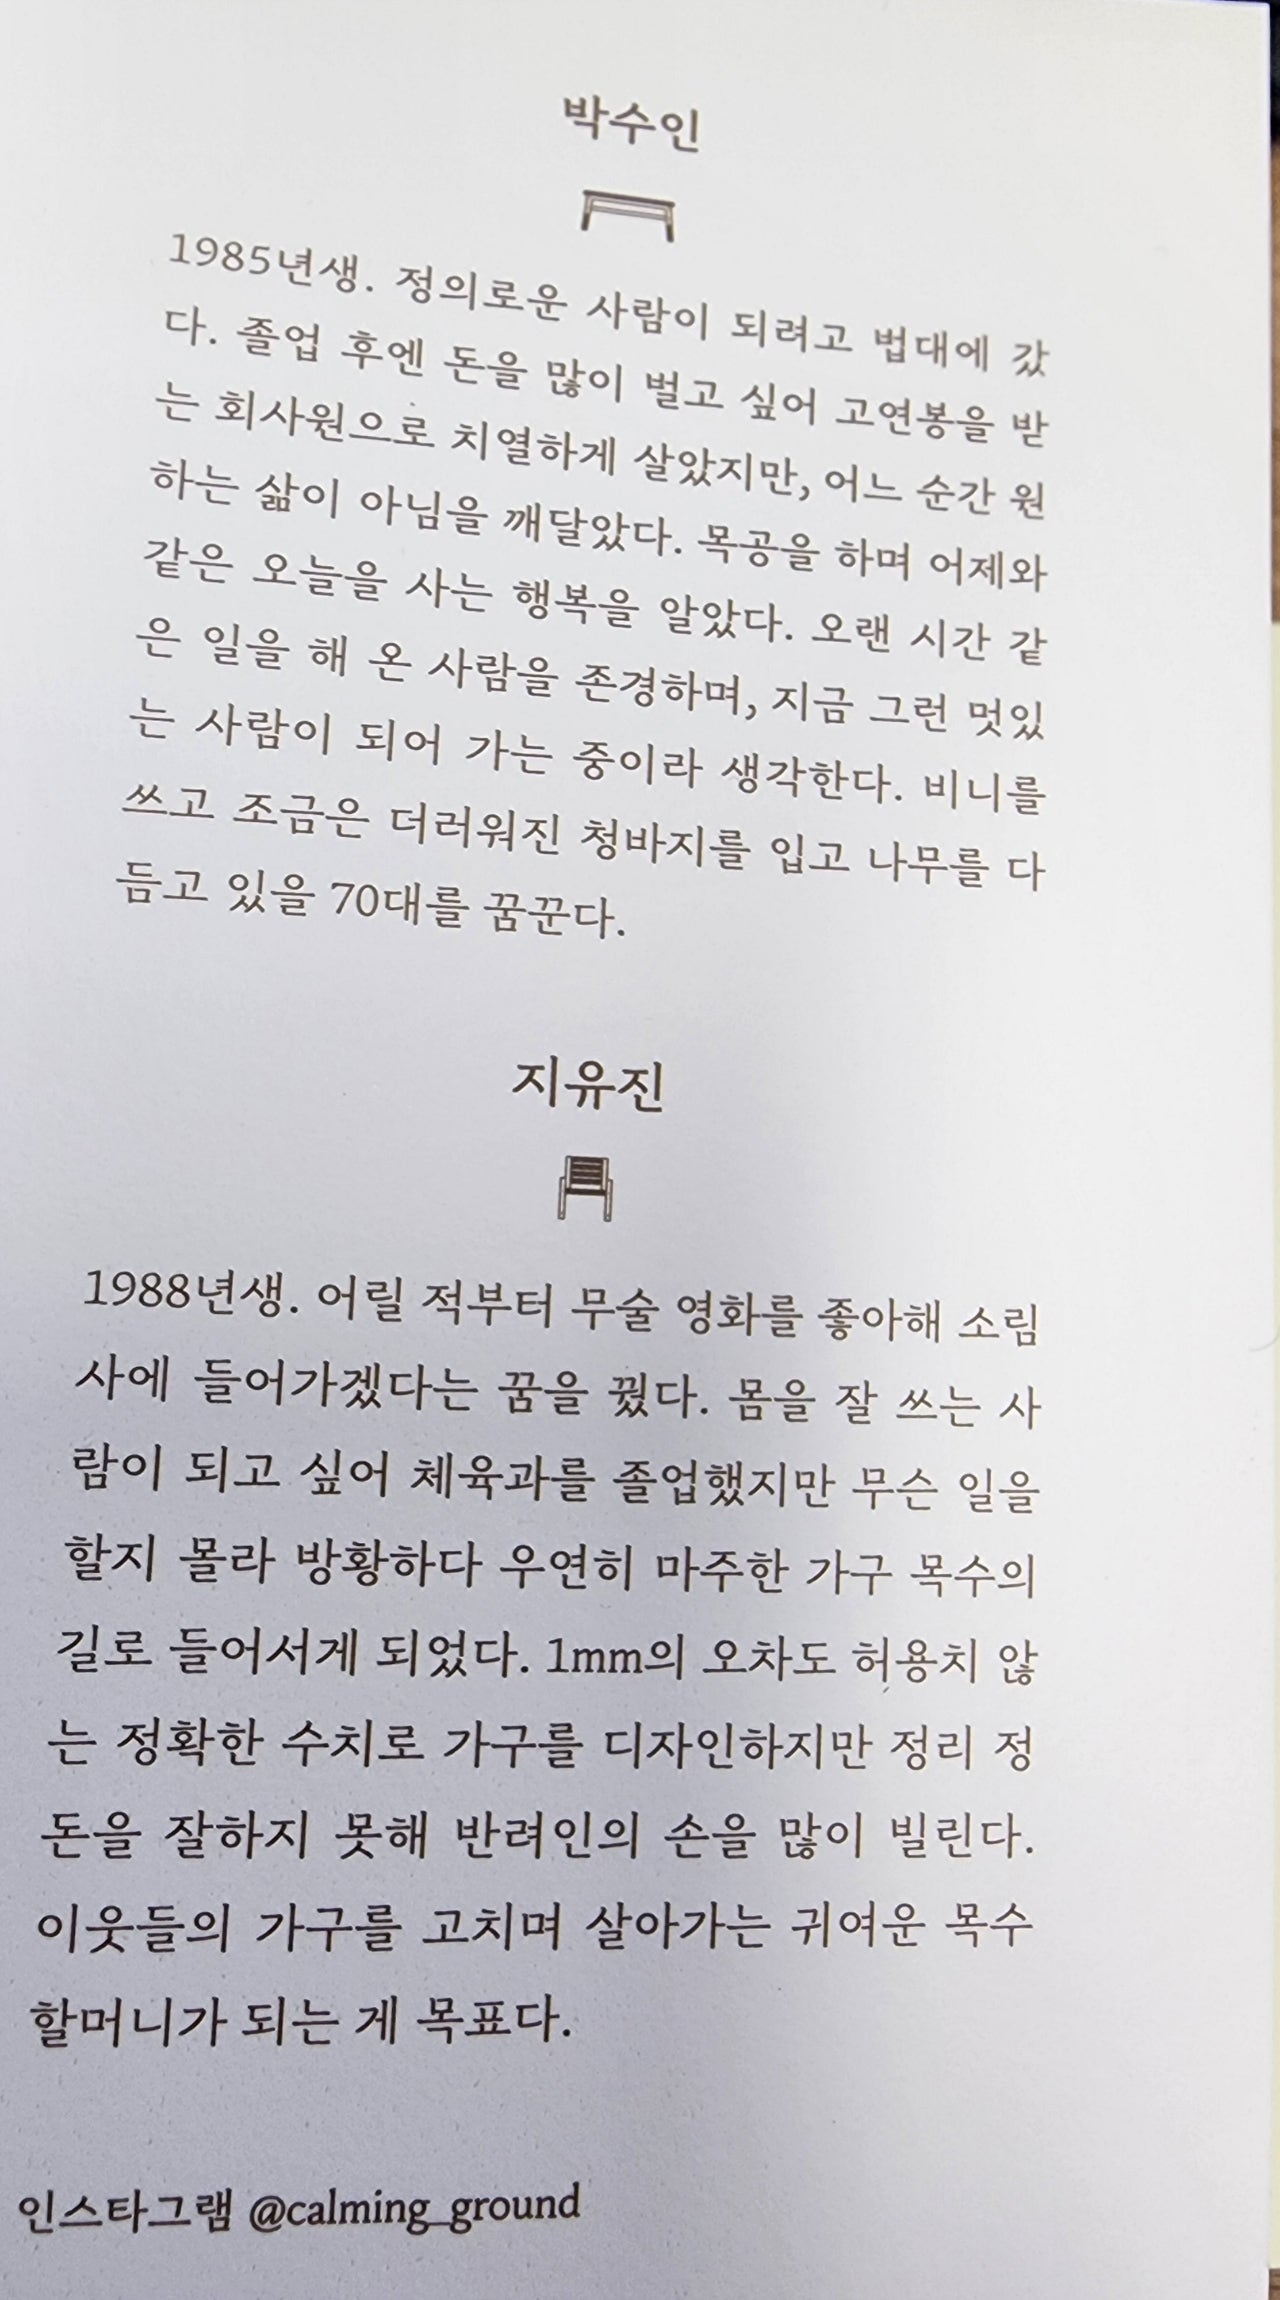 박수인
1985년생. 정의로운 사람이 되려고 법대에 갔
다. 졸업 후엔 돈을 많이 벌고 싶어 고연봉을 받
는 회사원으로 치열하게 살았지만, 어느 순간 원
하는 삶이 아님을 깨달았다. 목공을 하며 어제와
같은 오늘을 사는 행복을 알았다. 오랜 시간 같
은 일을 해 온 사람을 존경하며, 지금 그런 멋있
는 사람이 되어 가는 중이라 생각한다. 비니를
쓰고 조금은 더러워진 청바지를 입고 나무를 다
듬고 있을 70대를 꿈꾼다.
지유진
1988년생. 어릴 적부터 무술 영화를 좋아해 소림
사에 들어가겠다는 꿈을 꿨다. 몸을 잘 쓰는 사
람이 되고 싶어 체육과를 졸업했지만 무슨 일을
할지 몰라 방황하다 우연히 마주한 가구 목수의
길로 들어서게 되었다. 1mm의 오차도 허용치 않
는 정확한 수치로 가구를 디자인하지만 정리 정
돈을 잘하지 못해 반려인의 손을 많이 빌린다.
이웃들의 가구를 고치며 살아가는 귀여운 목수
할머니가 되는 게 목표다.
인스타그램 @calming_ground